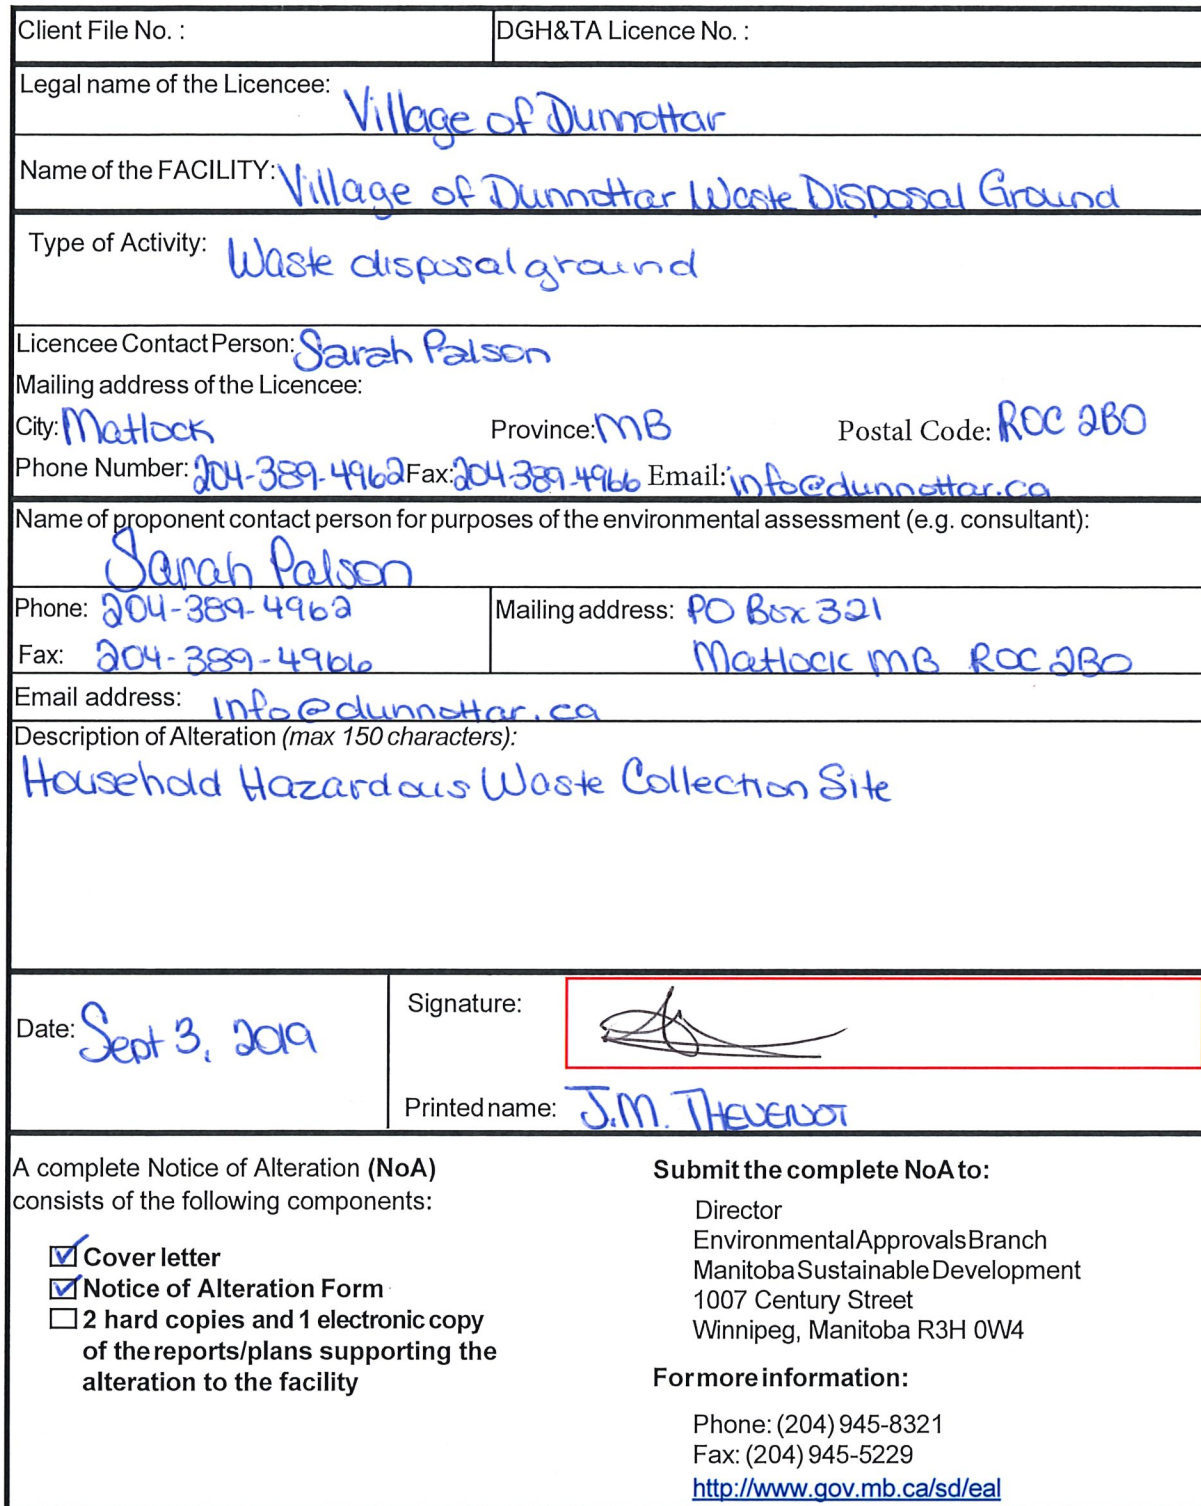 Client File No. : DGH&TA Licence No. :
Legal name of the Licencee: Village of Dunnottar
Name of the FACILITY: Village of Dunnottar Waste Disposal Ground
Type of Activity: Waste disposal ground
Licencee Contact Person: Sarah Palson
Mailing address of the Licencee:
City: Matlock Province: MB Postal Code: R0C 2B0
Phone Number: 204-389-4962 Fax: 204-389-4966 Email: info@dunnottar.ca
Name of proponent contact person for purposes of the environmental assessment (e.g. consultant):
Sarah Palson
Phone: 204-389-4962 Mailing address: PO Box 321
Fax: 204-389-4966 Matlock MB R0C 2B0
Email address: info@dunnottar.ca
Description of Alteration (max 150 characters):
Household Hazardous Waste Collection Site
Date: Sept 3, 2019 Signature:
Printed name: J.M. THEVENOT
A complete Notice of Alteration (NoA)
consists of the following components:
Cover letter
Notice of Alteration Form
2 hard copies and 1 electronic copy
of the reports/plans supporting the
alteration to the facility
Submit the complete NoA to:
Director
Environmental Approvals Branch
Manitoba Sustainable Development
1007 Century Street
Winnipeg, Manitoba R3H 0W4
For more information:
Phone: (204) 945-8321
Fax: (204) 945-5229
http://www.gov.mb.ca/sd/eal